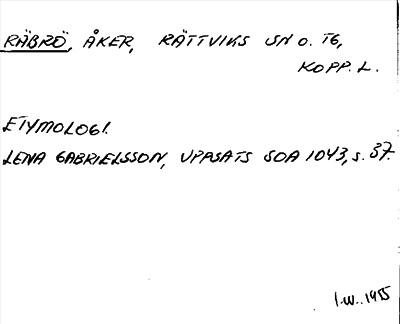 RÄBRÖ, ÅKER, RÄTTVIKS SN O. TG,
KOPP. L.
ETYMOLOGI.
LENA GABRIELSSON, UPPSATS SOA 1043, s. 37.
I.W. 1955